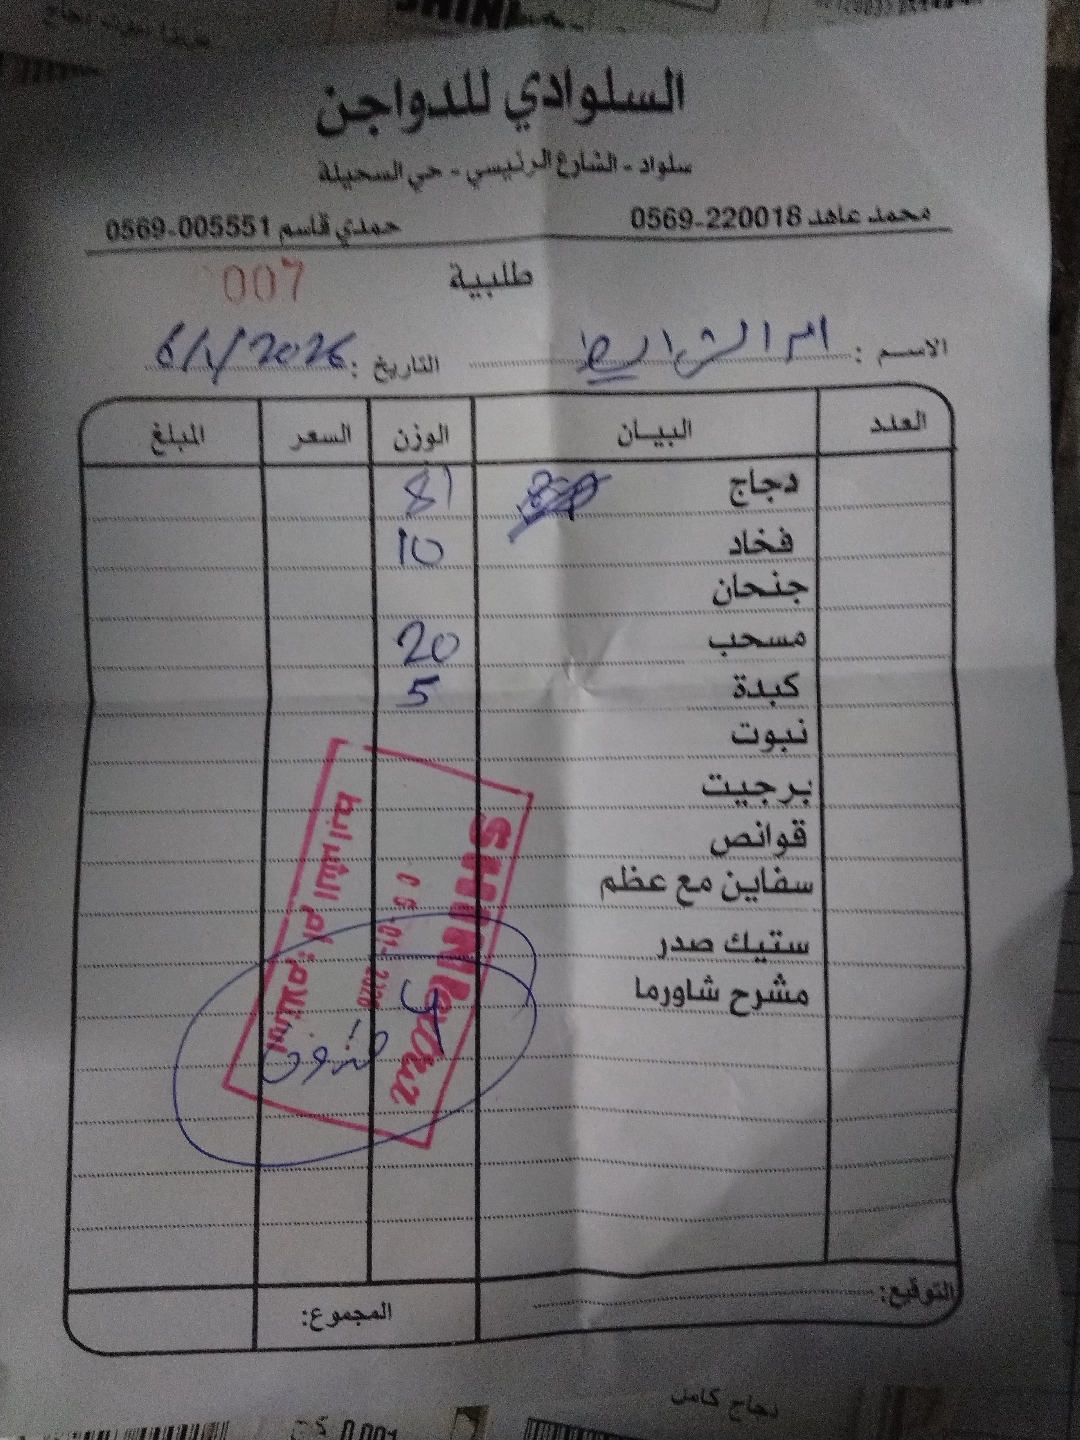 السلوادي للدواجن
سلواد - الشارع الرئيسي - حي السحيلة
محمد عاهد 0569-220018 حمدي قاسم 0569-005551
طلبية 007
الاسم : ام الشرايط التاريخ : 6/1/2026
العدد البيـــان الوزن السعر المبلغ
دجاج 81
فخاد 10
جنحان
مسحب 20
كبدة 5
نبوت
برجيت
قوانص
سفاين مع عظم
ستيك صدر
مشرح شاورما
SHINI extra
-01- 2026
استلام: ام الشرايط
التوقيع: المجموع:
دجاج كامل